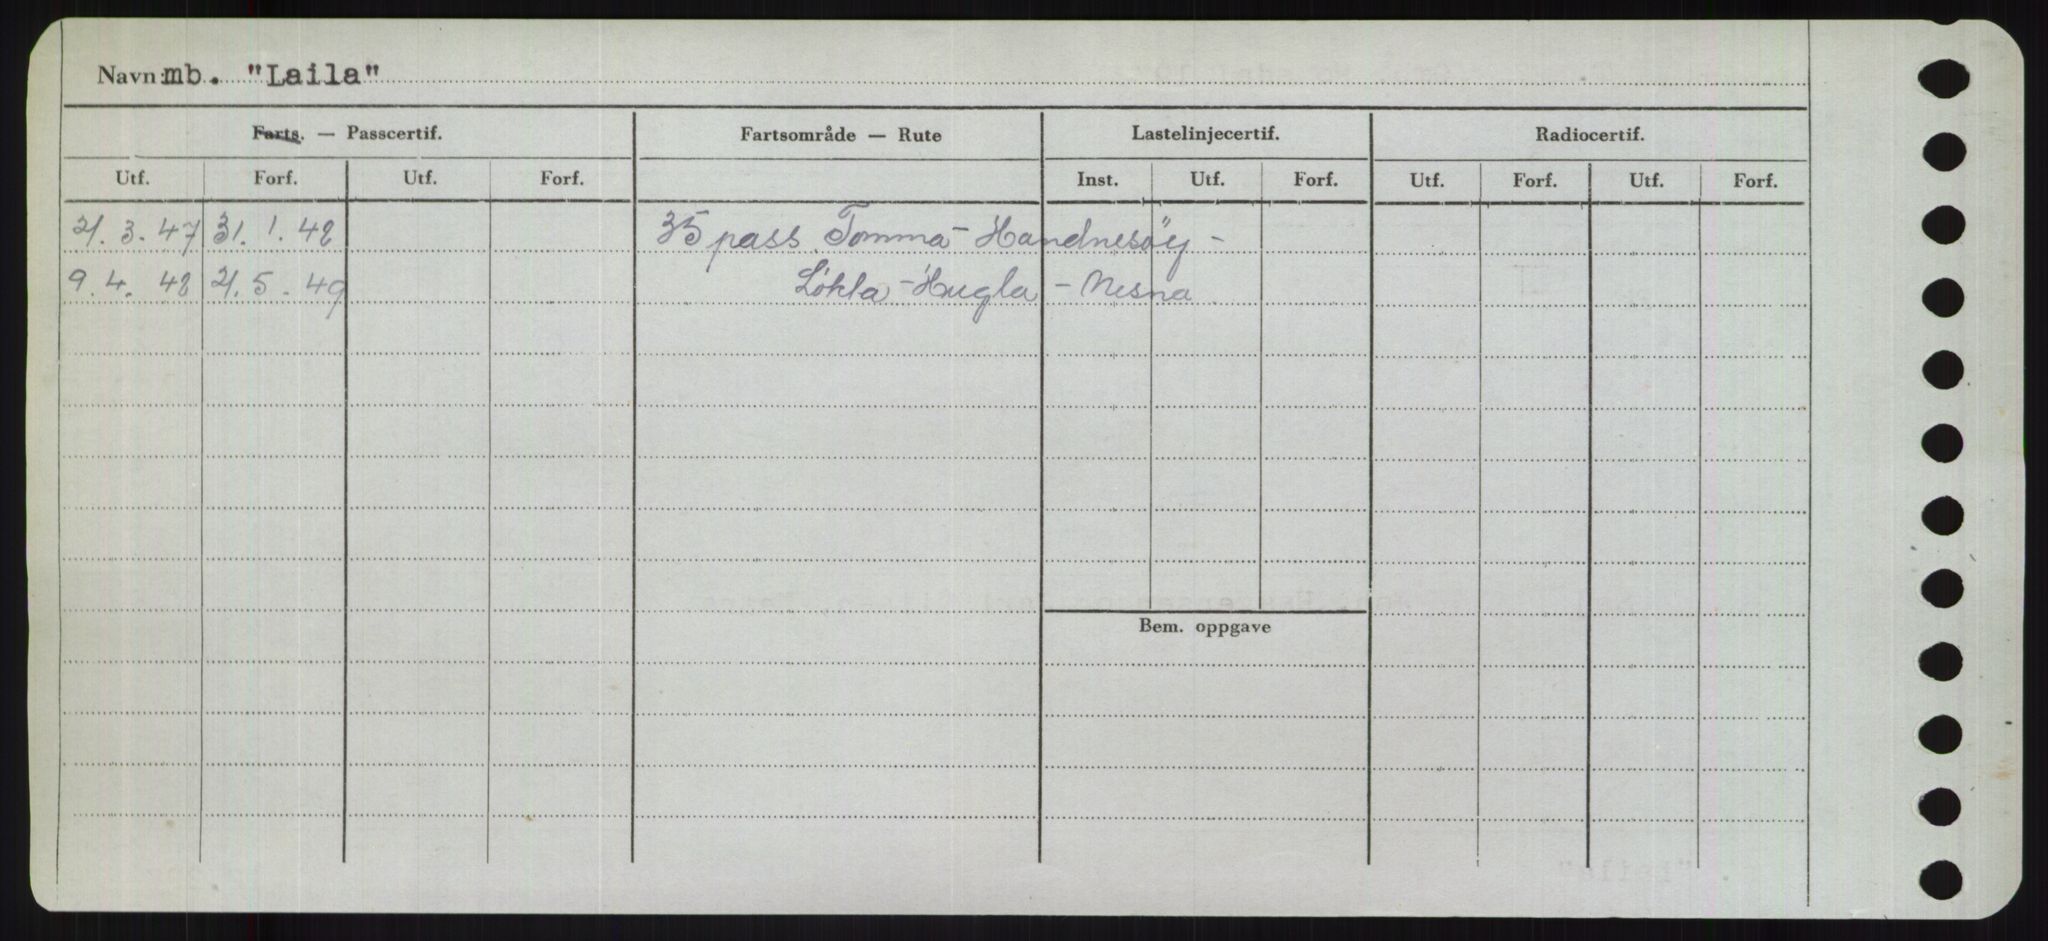 Navn: mb. "Laila"
Farts. — Passcertif. Fartsområde — Rute Lastelinjecertif. Radiocertif.
Utf. Forf. Utf. Forf. Inst. Utf. Forf. Utf. Forf. Utf. Forf.
21. 3. 47 31. 1. 48 35 pass Tomma - Handnesøy -
9. 4. 48 21. 5. 49 Løkta - Hugla - Nesna
Bem. oppgave